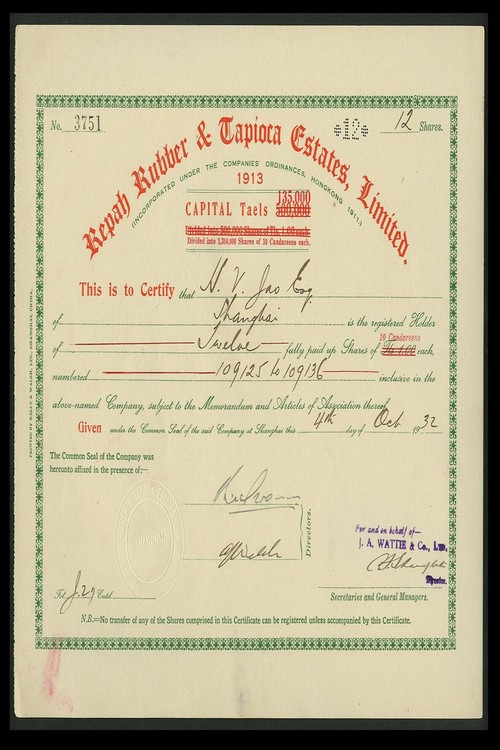 No. 3751
*12*
12 Shares.
Repah Rubber & Tapioca Estates, Limited.
(INCORPORATED UNDER THE COMPANIES' ORDINANCES, HONGKONG 1911.)
1913
CAPITAL Taels 135,000
Divided into 1,350,000 Shares of 10 Candareens each.
This is to Certify that N. V. Jao Esq
of Shanghai is the registered Holder
10 Candareens
of Twelve fully paid up Shares of Tls 1.00 each,
numbered 109125 to 109136 inclusive in the
above-named Company, subject to the Memorandum and Articles of Association thereof.
Given under the Common Seal of the said Company at Shanghai this 4th day of Oct 1932
The Common Seal of the Company was
hereunto affixed in the presence of:—
Directors.
For and on behalf of—
J. A. WATTIE & Co., LTD.
Director.
Secretaries and General Managers.
Fol. J. 29 Entd.
N.B.—No transfer of any of the Shares comprised in this Certificate can be registered unless accompanied by this Certificate.
PRINTED BY KELLY & WALSH, LTD., SHANGHAI, CHINA.